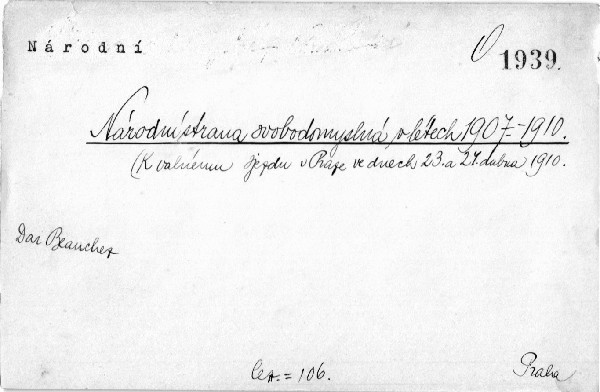 Národní
O 1939.
Národní strana svobodomyslná v létech 1907.-1910.
(K valnému sjezdu v Praze ve dnech 23. a 24. dubna 1910.
Dar Beaucher
= 106.
Praha